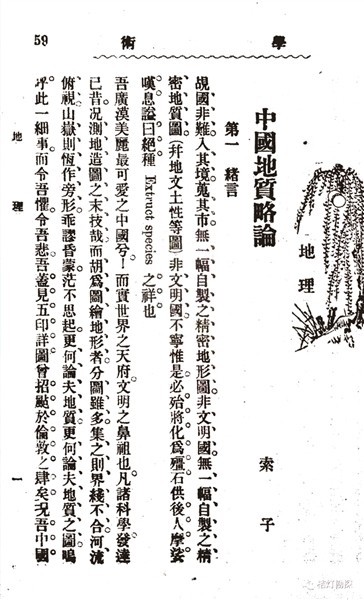 學術
59
地理
中國地質略論
索子
第一 緒言
覘國非難入其境蒐其市無一幅自製之精密地形圖非文明國無一幅自製之精
密地質圖(幷地文土性等圖)非文明國不寧惟是必殆將化爲殭石供後人摩挲
嘆息謚曰絕種 Extruct species 之祥也
吾廣漠美麗最可愛之中國兮!而實世界之天府文明之鼻祖也凡諸科學發達
已昔况測地造圖之末技哉而胡爲圖繪地形者分圖雖多集之則界綫不合河流
俯視山嶽則恆作旁形乖謬昏蒙茫不思起更何論夫地質更何論夫地質之圖嗚
呼此一細事而令吾懼令吾悲吾蓋見五印詳圖曾招颭於倫敦之肆矣况吾中國
地理
一
桔灯勘探